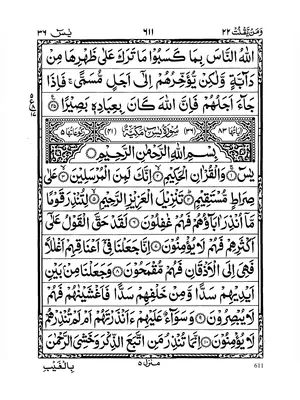 وَمَنْ يَّقْنُتْ ٢٢ ٦١١ يٰسٓ ٣٦
اللّٰهُ النَّاسَ بِمَا كَسَبُوْا مَا تَرَكَ عَلٰى ظَهْرِهَا مِنْ
دَآبَّةٍ وَّلٰكِنْ يُّؤَخِّرُهُمْ اِلٰٓى اَجَلٍ مُّسَمًّى ۚ فَاِذَا
جَآءَ اَجَلُهُمْ فَاِنَّ اللّٰهَ كَانَ بِعِبَادِهٖ بَصِيْرًا
اٰيَاتُهَا ٨٣ (٣٦) سُوْرَةُ يٰسٓ مَكِّيَّةٌ (٤١) رُكُوْعَاتُهَا ٥
بِسْمِ اللّٰهِ الرَّحْمٰنِ الرَّحِيْمِ
يٰسٓ ۝ وَالْقُرْاٰنِ الْحَكِيْمِ ۝ اِنَّكَ لَمِنَ الْمُرْسَلِيْنَ ۝ عَلٰى
صِرَاطٍ مُّسْتَقِيْمٍ ۝ تَنْزِيْلَ الْعَزِيْزِ الرَّحِيْمِ ۝ لِتُنْذِرَ قَوْمًا
مَّآ اُنْذِرَ اٰبَآؤُهُمْ فَهُمْ غٰفِلُوْنَ ۝ لَقَدْ حَقَّ الْقَوْلُ عَلٰٓى
اَكْثَرِهِمْ فَهُمْ لَا يُؤْمِنُوْنَ ۝ اِنَّا جَعَلْنَا فِيْٓ اَعْنَاقِهِمْ اَغْلٰلًا
فَهِيَ اِلَى الْاَذْقَانِ فَهُمْ مُّقْمَحُوْنَ ۝ وَجَعَلْنَا مِنْۢ بَيْنِ
اَيْدِيْهِمْ سَدًّا وَّمِنْ خَلْفِهِمْ سَدًّا فَاَغْشَيْنٰهُمْ فَهُمْ
لَا يُبْصِرُوْنَ ۝ وَسَوَآءٌ عَلَيْهِمْ ءَاَنْذَرْتَهُمْ اَمْ لَمْ تُنْذِرْهُمْ
لَا يُؤْمِنُوْنَ ۝ اِنَّمَا تُنْذِرُ مَنِ اتَّبَعَ الذِّكْرَ وَخَشِيَ الرَّحْمٰنَ
بِالْغَيْبِ
منزل ٥
611